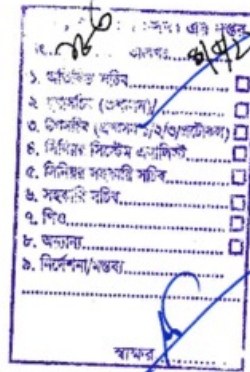 এর দপ্তর
১. অতিরিক্ত সচিব
২. (প্রশাসন)/
৩. উপসচিব (প্রশাসন-১/২/৩/প্রটোকল)
৪. সিনিয়র সিস্টেম এনালিস্ট
৫. সিনিয়র সহকারী সচিব
৬. সহকারি সচিব
৭. পিও
৮. অন্যান্য
৯. নির্দেশনা/মন্তব্য
স্বাক্ষর